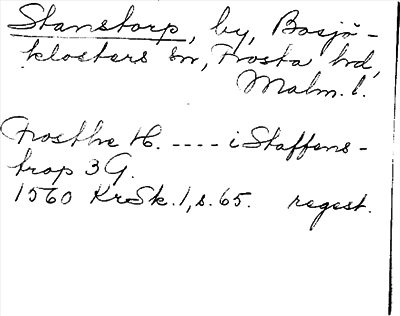 Stanstorp, by, Bosjö-
klosters sn, Frosta hd,
Malm. l.
Frosthe H. ---- i Staffens-
trap 3 G.
1560 KrSk. 1, s. 65. regest.